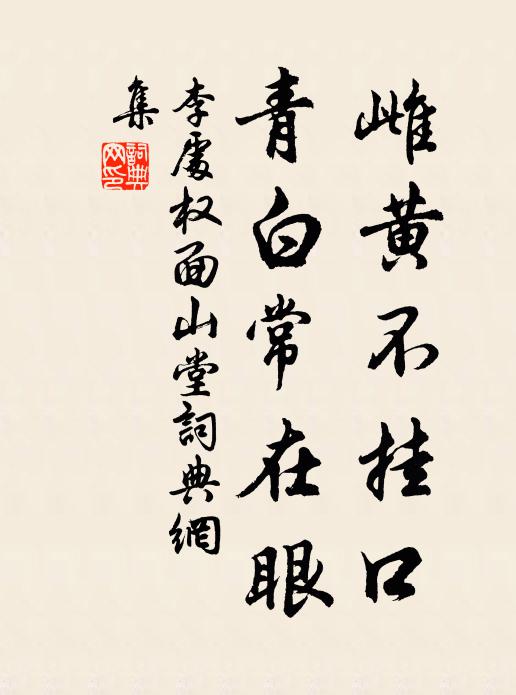 雌黄不挂口
青白常在眼
李處权面山堂詞典網
集
詞典网印